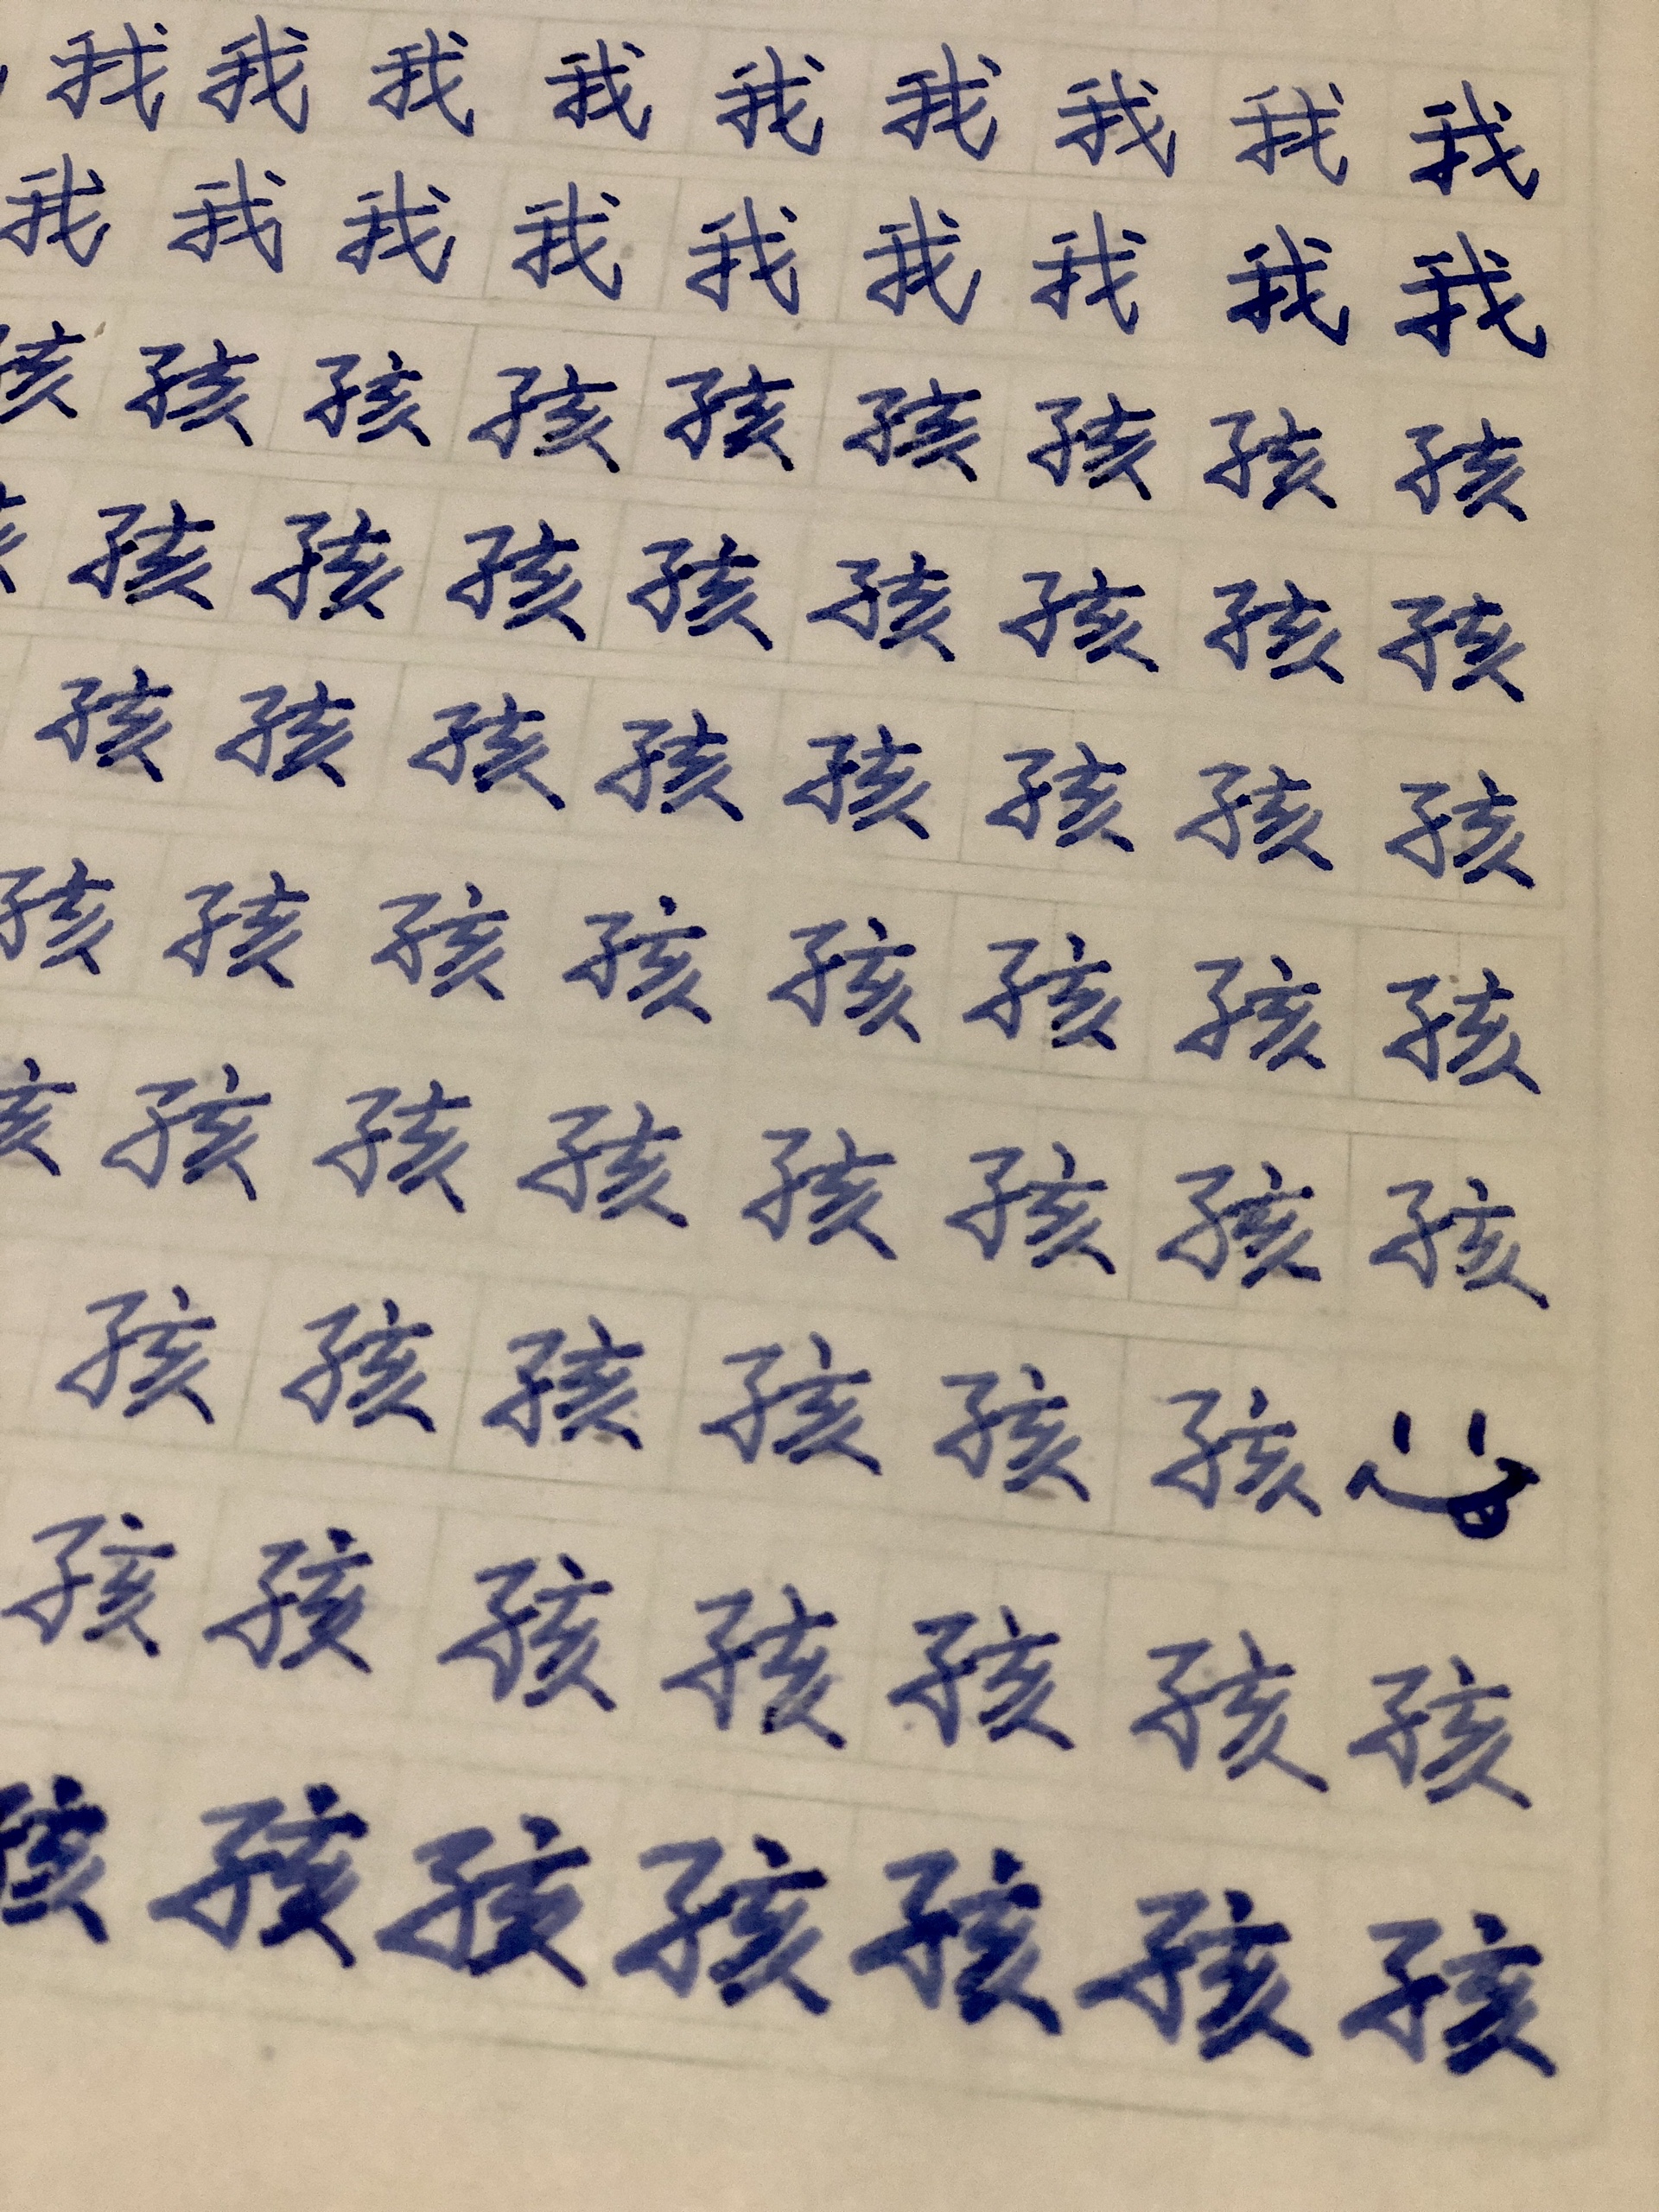 我我我我我我我我我
我我我我我我我我我
孩孩孩孩孩孩孩孩孩
孩孩孩孩孩孩孩孩
孩孩孩孩孩孩孩孩
孩孩孩孩孩孩孩孩
孩孩孩孩孩孩孩孩
孩孩孩孩孩孩
孩孩孩孩孩孩孩
孩孩孩孩孩孩孩